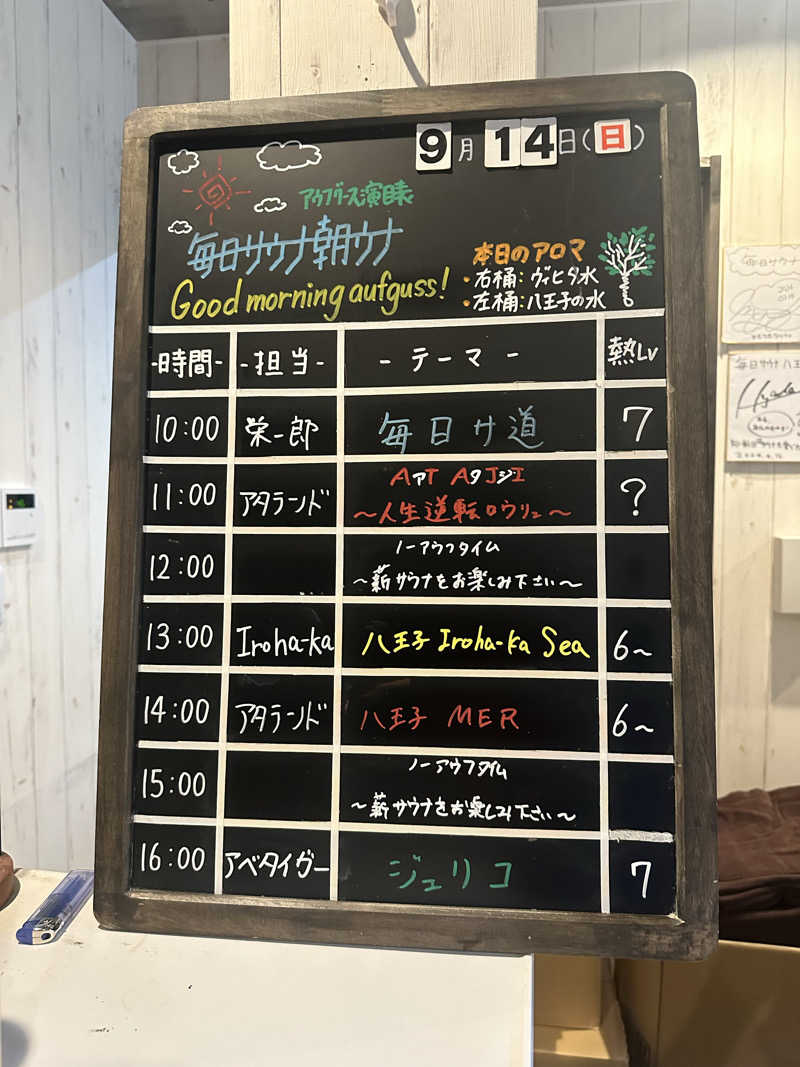 9月14日(日)
アウフグース演目表
毎日サウナ朝ウナ
Good morning aufguss!
本日のアロマ
・右桶：ヴィヒタ水
・左桶：八王子の水
-時間- -担当- -テーマ- 熱Lv
10:00 栄一郎 毎日サ道 7
11:00 アタランド AアT AタJジI ?
～人生逆転ロウリュ～
12:00 ノーアウフタイム
～薪サウナをお楽しみ下さい～
13:00 Iroha-ka 八王子 Iroha-ka Sea 6～
14:00 アタランド 八王子 MER 6～
15:00 ノーアウフタイム
～薪サウナをお楽しみ下さい～
16:00 アベタイガー ジュリコ 7
毎日サウナ
毎日サウナ 八王